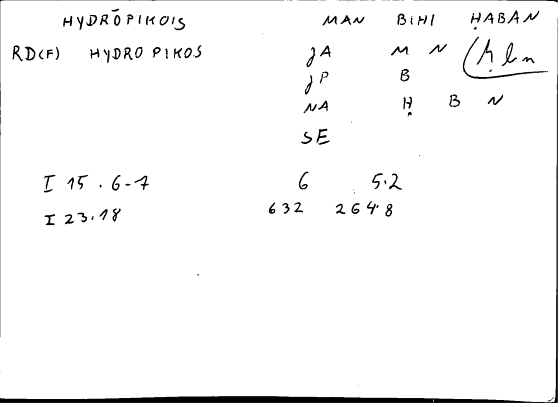 HYDRŌPIKOIS MAN BIHI ḤABAN
RD(F) HYDROPIKOS JA M N ḥbn
JP B
NA Ḥ B N
SE
I 15.6-7 6 5.2
I 23.18 632 264.8